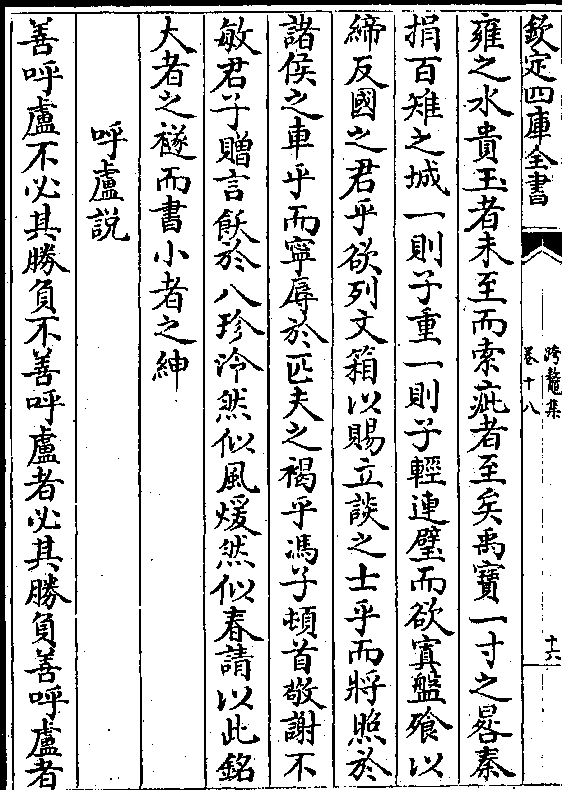 欽定四庫全書
跨鼇集
卷十八
十六
雍之水貴玉者未至而索疵者至矣禹寶一寸之晷秦
捐百雉之城一則子重一則子輕連璧而欲寘盤飱以
締反國之君乎欲列文箱以賜立談之士乎而將照於
諸侯之車乎而寧辱於匹夫之褐乎馮子頓首敬謝不
敏君子贈言飫於八珍泠然似風煖然似春請以此銘
大者之襚而書小者之紳
呼盧説
善呼盧不必其勝負不善呼盧者必其勝負善呼盧者